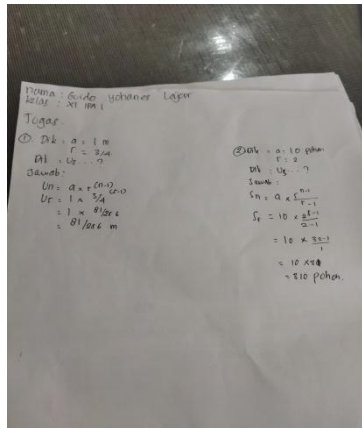 Nama : Guido Yohanes Lajar
Kelas : XI IPA 1
Tugas.
① Dik : a = 1 m
r = 3/4
Dit = U5 ... ?
Jawab :
Un = a x r^(n-1)
U5 = 1 x 3/4^(5-1)
= 1 x 81/256
= 81/256 m
② Dik = a = 10 pohon
r = 2
Dit = U5 ... ?
Jawab :
Sn = a x r^n-1 / r-1
S5 = 10 x 2^5-1 / 2-1
= 10 x 32-1 / 1
= 10 x 31
= 310 pohon.